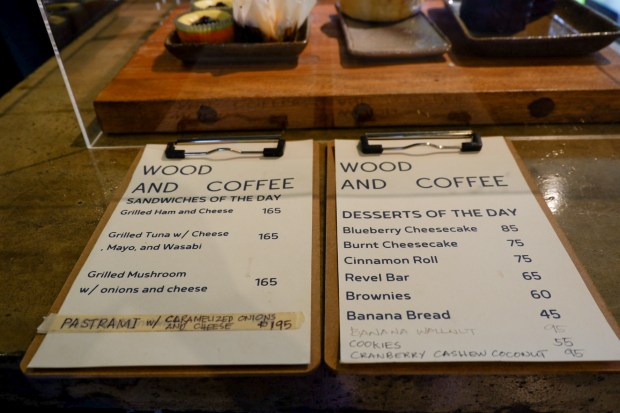 WOOD
AND COFFEE
SANDWICHES OF THE DAY
Grilled Ham and Cheese 165
Grilled Tuna w/ Cheese 165
, Mayo, and Wasabi
Grilled Mushroom
w/ onions and cheese 165
PASTRAMI w/ CARAMELIZED ONIONS
AND CHEESE ₱195
WOOD
AND COFFEE
DESSERTS OF THE DAY
Blueberry Cheesecake 85
Burnt Cheesecake 75
Cinnamon Roll 75
Revel Bar 65
Brownies 60
Banana Bread 45
BANANA WALNUT 95
COOKIES 55
CRANBERRY CASHEW COCONUT 95